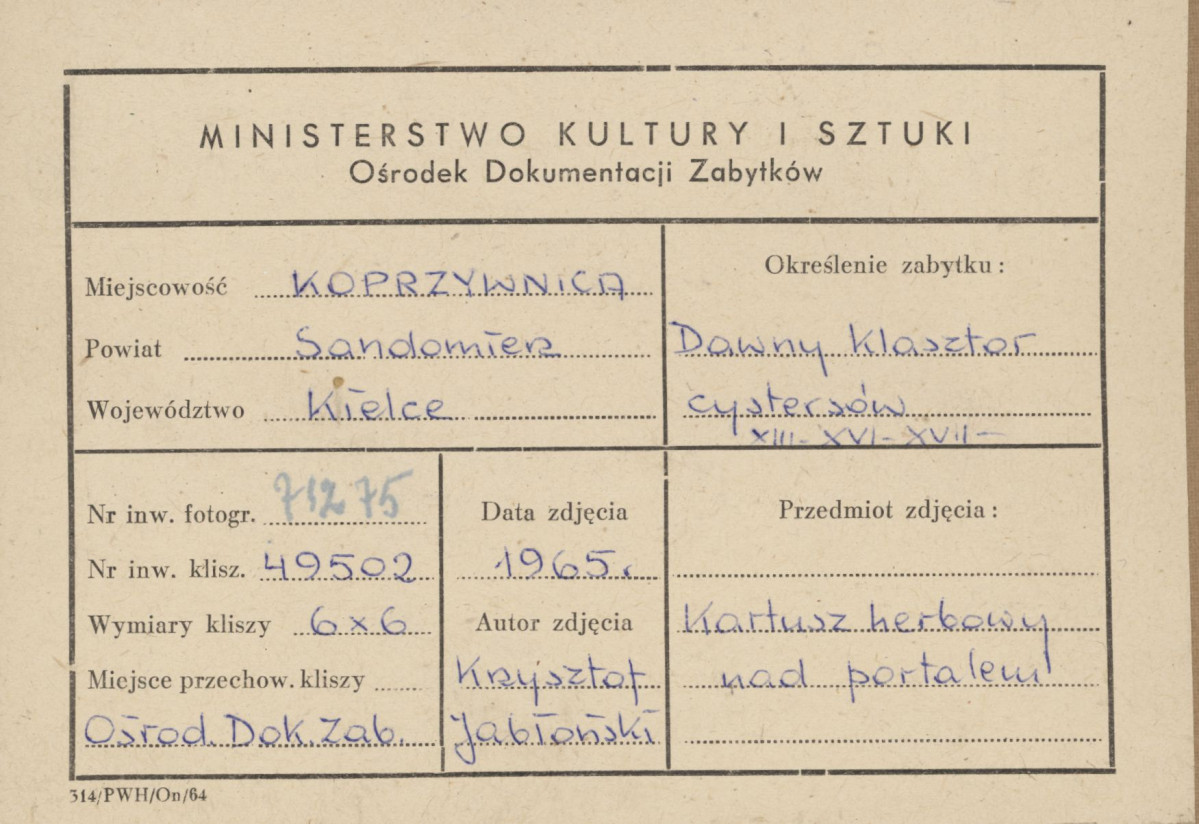 MINISTERSTWO KULTURY I SZTUKI
Ośrodek Dokumentacji Zabytków
Miejscowość KOPRZYWNICA
Powiat Sandomierz
Województwo Kielce
Określenie zabytku:
Dawny Klasztor
cystersów
XIII-XVI-XVII-
Nr inw. fotogr. 71275
Nr inw. klisz. 49502
Wymiary kliszy 6x6
Miejsce przechow. kliszy
Ośrod. Dok. Zab.
Data zdjęcia
1965r.
Autor zdjęcia
Krzysztof
Jabłoński
Przedmiot zdjęcia:
Kartusz herbowy
nad portalem
314/PWH/On/64